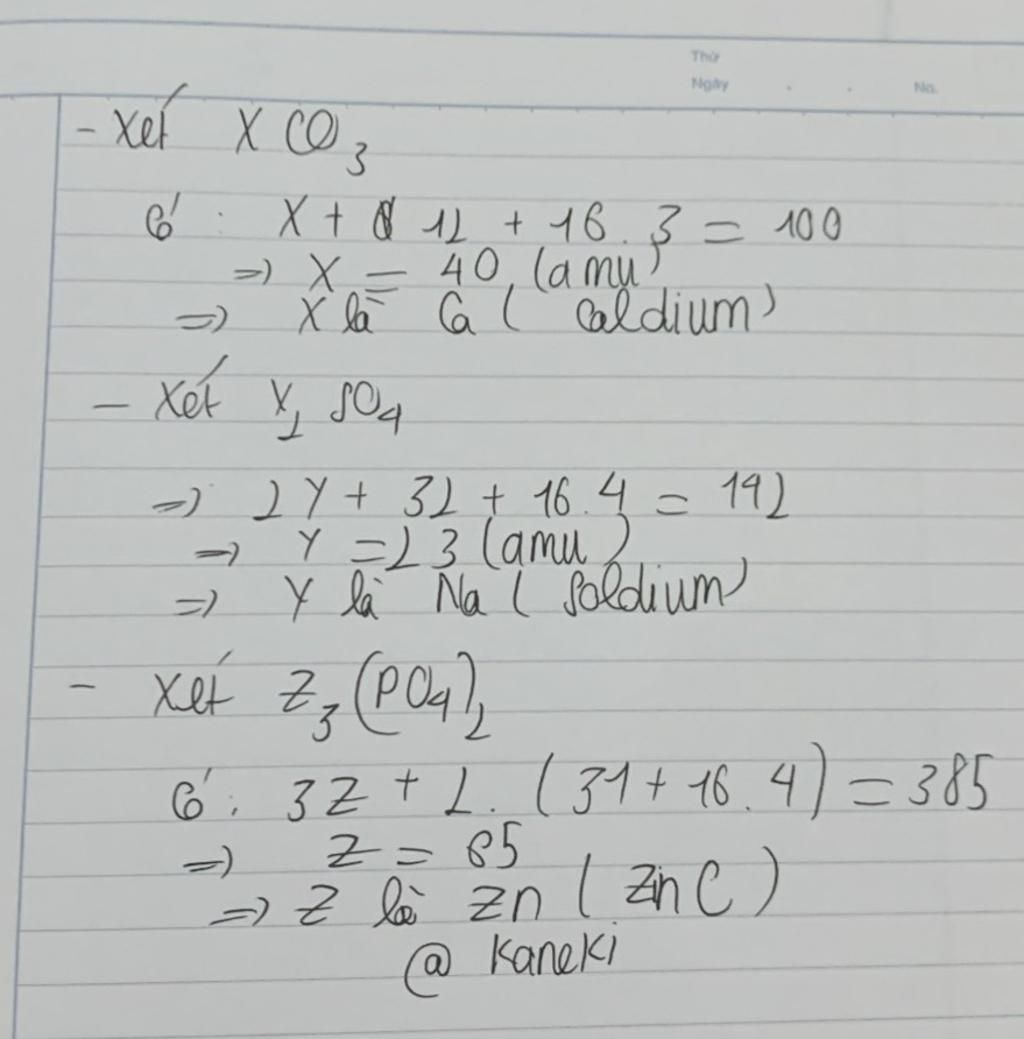 Thứ
Ngày . . No.
- Xét XCO₃
Có : X + 12 + 16 . 3 = 100
=> X = 40 (amu)
=> X là Ca ( Caldium)
- Xét Y₂ SO₄
=> 2Y + 32 + 16.4 = 142
=> Y = 23 (amu)
=> Y là Na ( Soldium)
- Xét Z₃(PO₄)₂
Có : 3Z + 2. (31 + 16 . 4) = 385
=> Z = 65
=> Z là Zn ( ZinC )
@ Kaneki